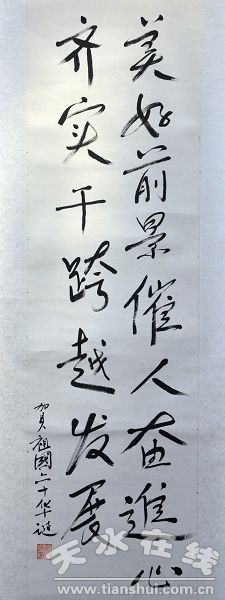 美好前景催人奋進心
齐实干跨越发展
贺祖國六十华诞
天水在线
www.tianshui.com.cn